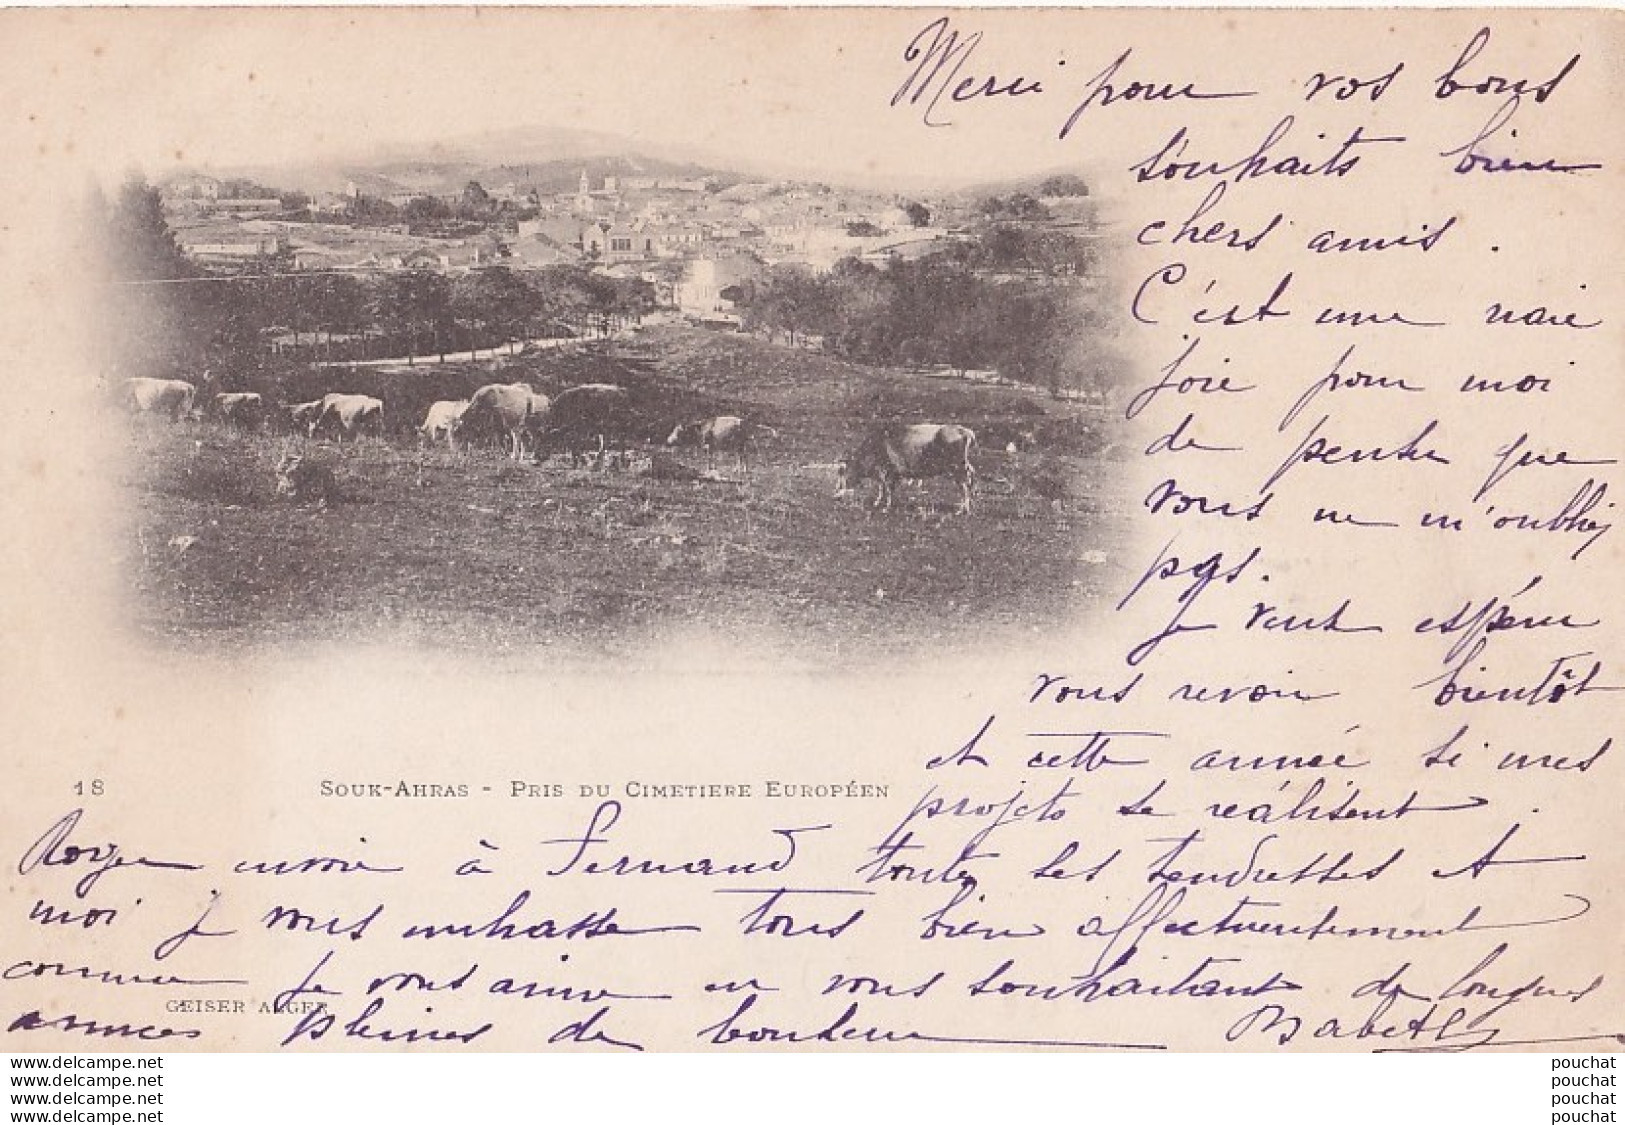 Merci pour vos bons
souhaits bien
chers amis.
C'est une vraie
joie pour moi
de penser que
vous ne m'oubliez
pas.
Je veux espérer
vous revoir bientôt
et cette année si mes
projets se réalisent.
18
SOUK-AHRAS - PRIS DU CIMETIERE EUROPÉEN
Roger envoie à Fernand toutes ses tendresses et
moi je vous embrasse tous bien affectueusement
comme je vous aime en vous souhaitant de longues
GEISER ALGER
années pleines de bonheur
www.delcampe.net
www.delcampe.net
www.delcampe.net
www.delcampe.net
pouchat
pouchat
pouchat
pouchat